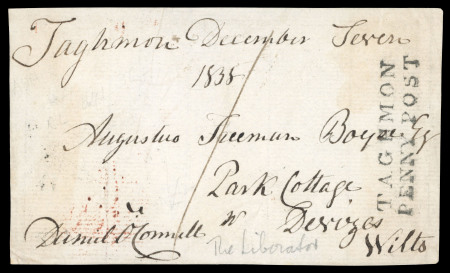 Taghmon December Seven
1838
Augustus Freeman Esq
Park Cottage
Devizes
Wilts
Daniel O'Connell
The Liberator
TAGHMON
PENNY POST